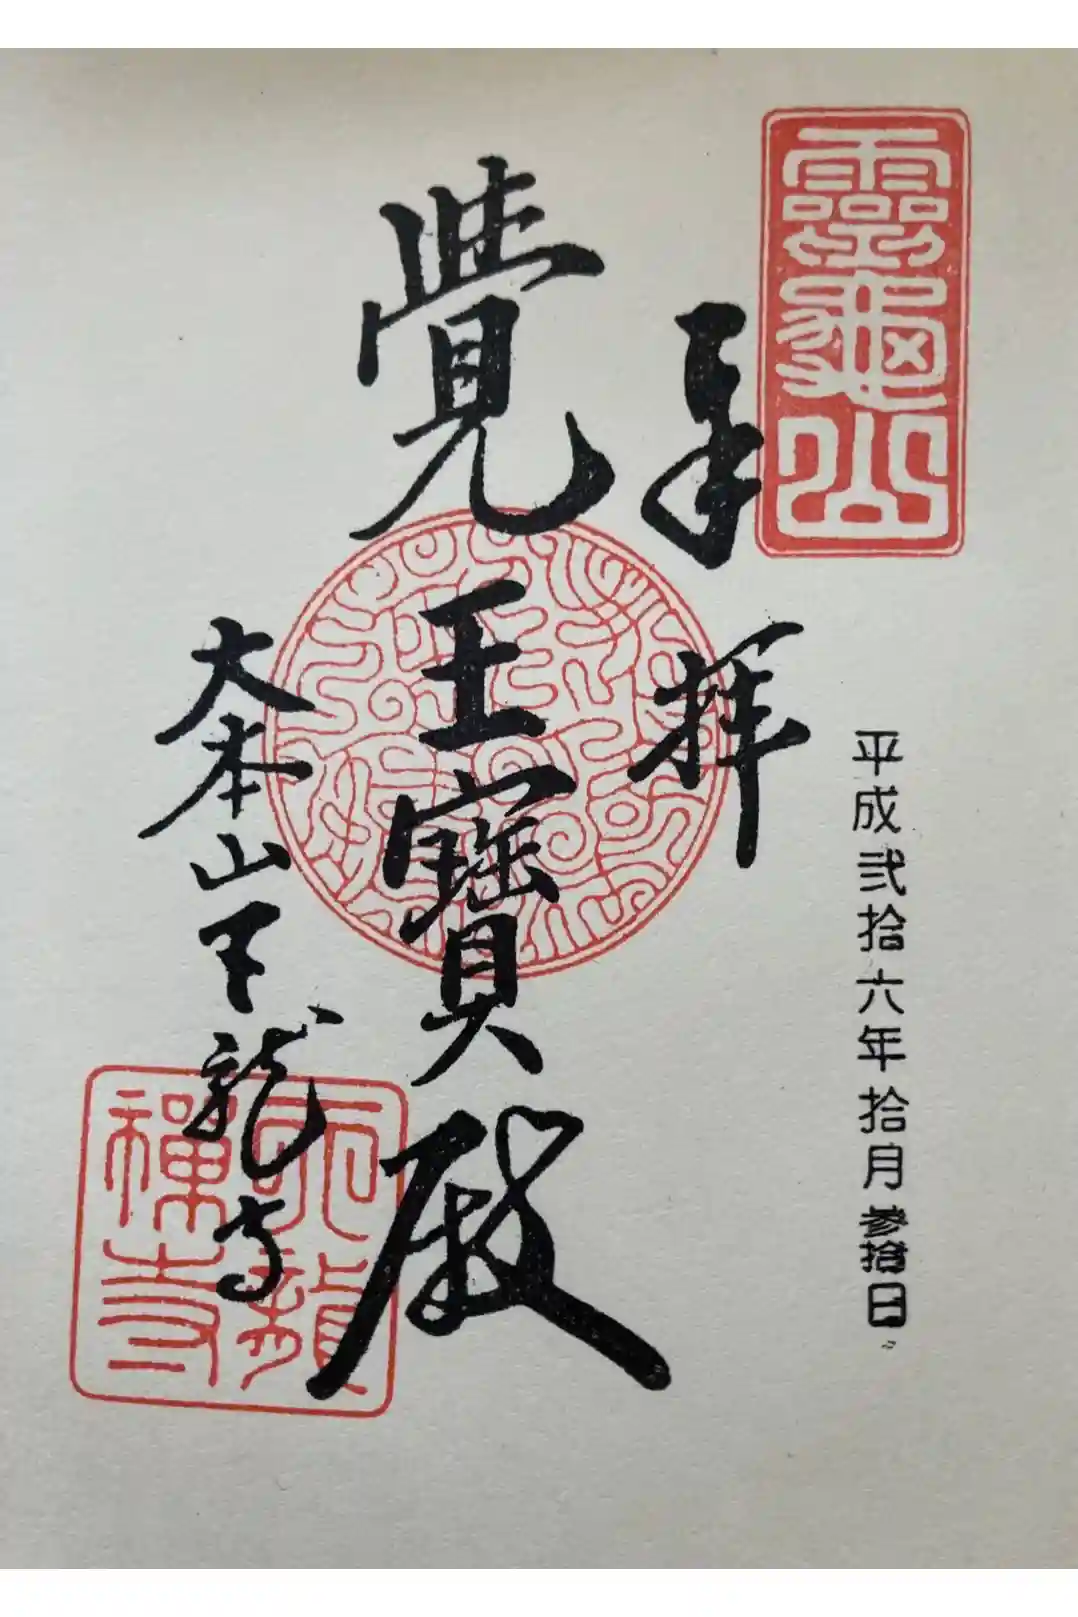 靈龜山
平成弐拾六年拾月参拾日
奉拝
覺王寶殿
大本山天龍寺
天龍
禪寺